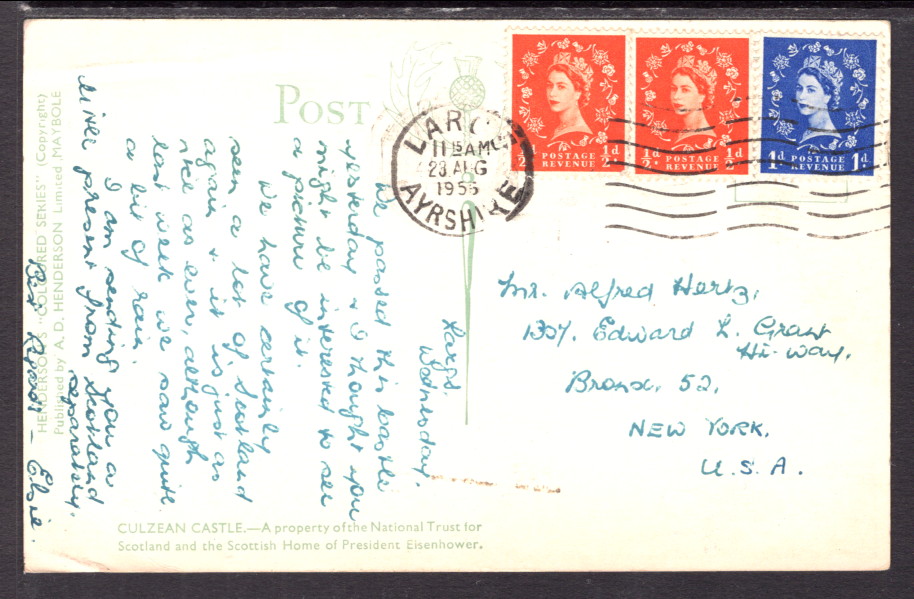 POST
LARGS
11 15 AM
23 AUG
1956
AYRSHIRE
½d POSTAGE REVENUE ½d
½d POSTAGE REVENUE ½d
1d POSTAGE REVENUE 1d
Largs.
Wednesday.
We passed this castle
yesterday & I thought you
might be interested to see
a picture of it.
We have certainly
seen a lot of Scotland
again & it is just as
nice as ever, although
last week we saw quite
a bit of rain.
I am sending you a
little present from Scotland
separately.
Best Regards – Elsie.
Mr. Alfred Hertz,
1304. Edward L. Grant
Hi-way.
Bronx. 52,
NEW YORK.
U.S.A.
HENDERSON'S "COLOURED SERIES" (Copyright)
Published by A. D. HENDERSON Limited, MAYBOLE
CULZEAN CASTLE.—A property of the National Trust for
Scotland and the Scottish Home of President Eisenhower.